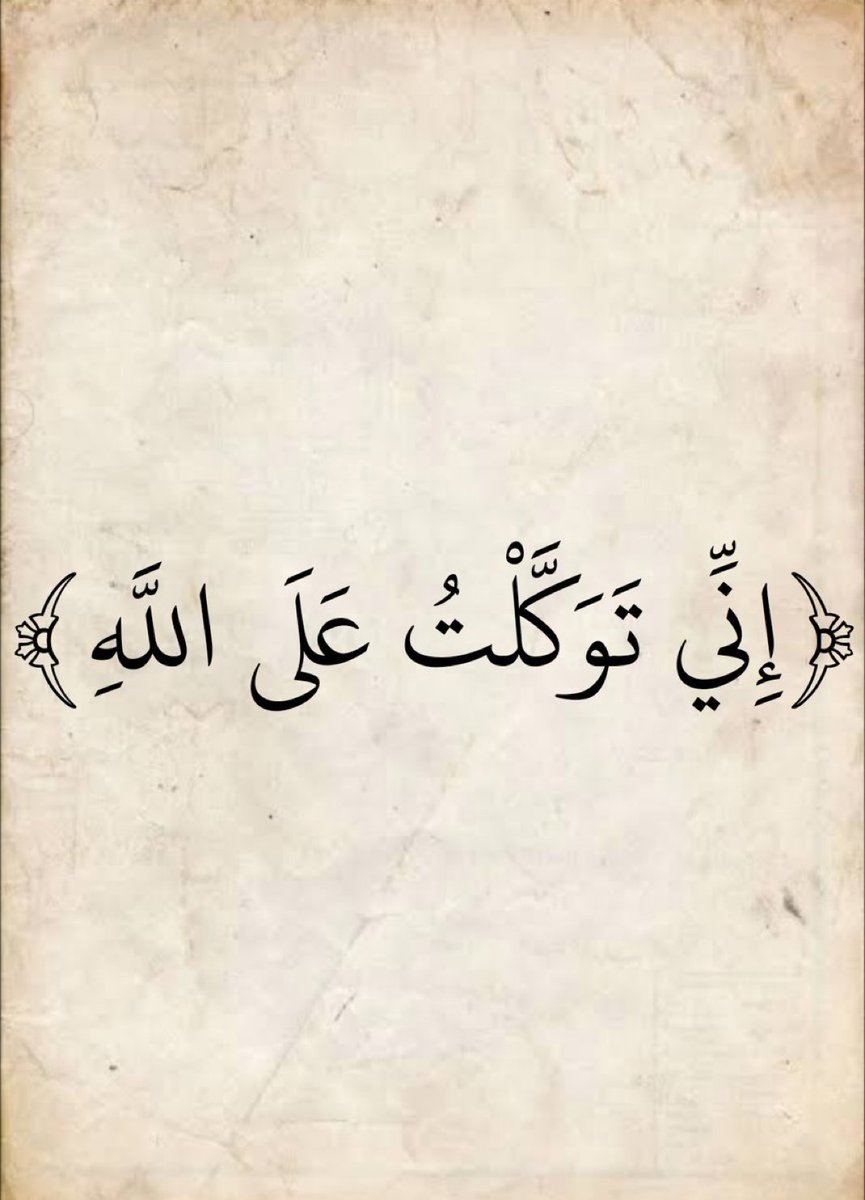 ﴿إِنِّي تَوَكَّلْتُ عَلَى اللَّهِ﴾